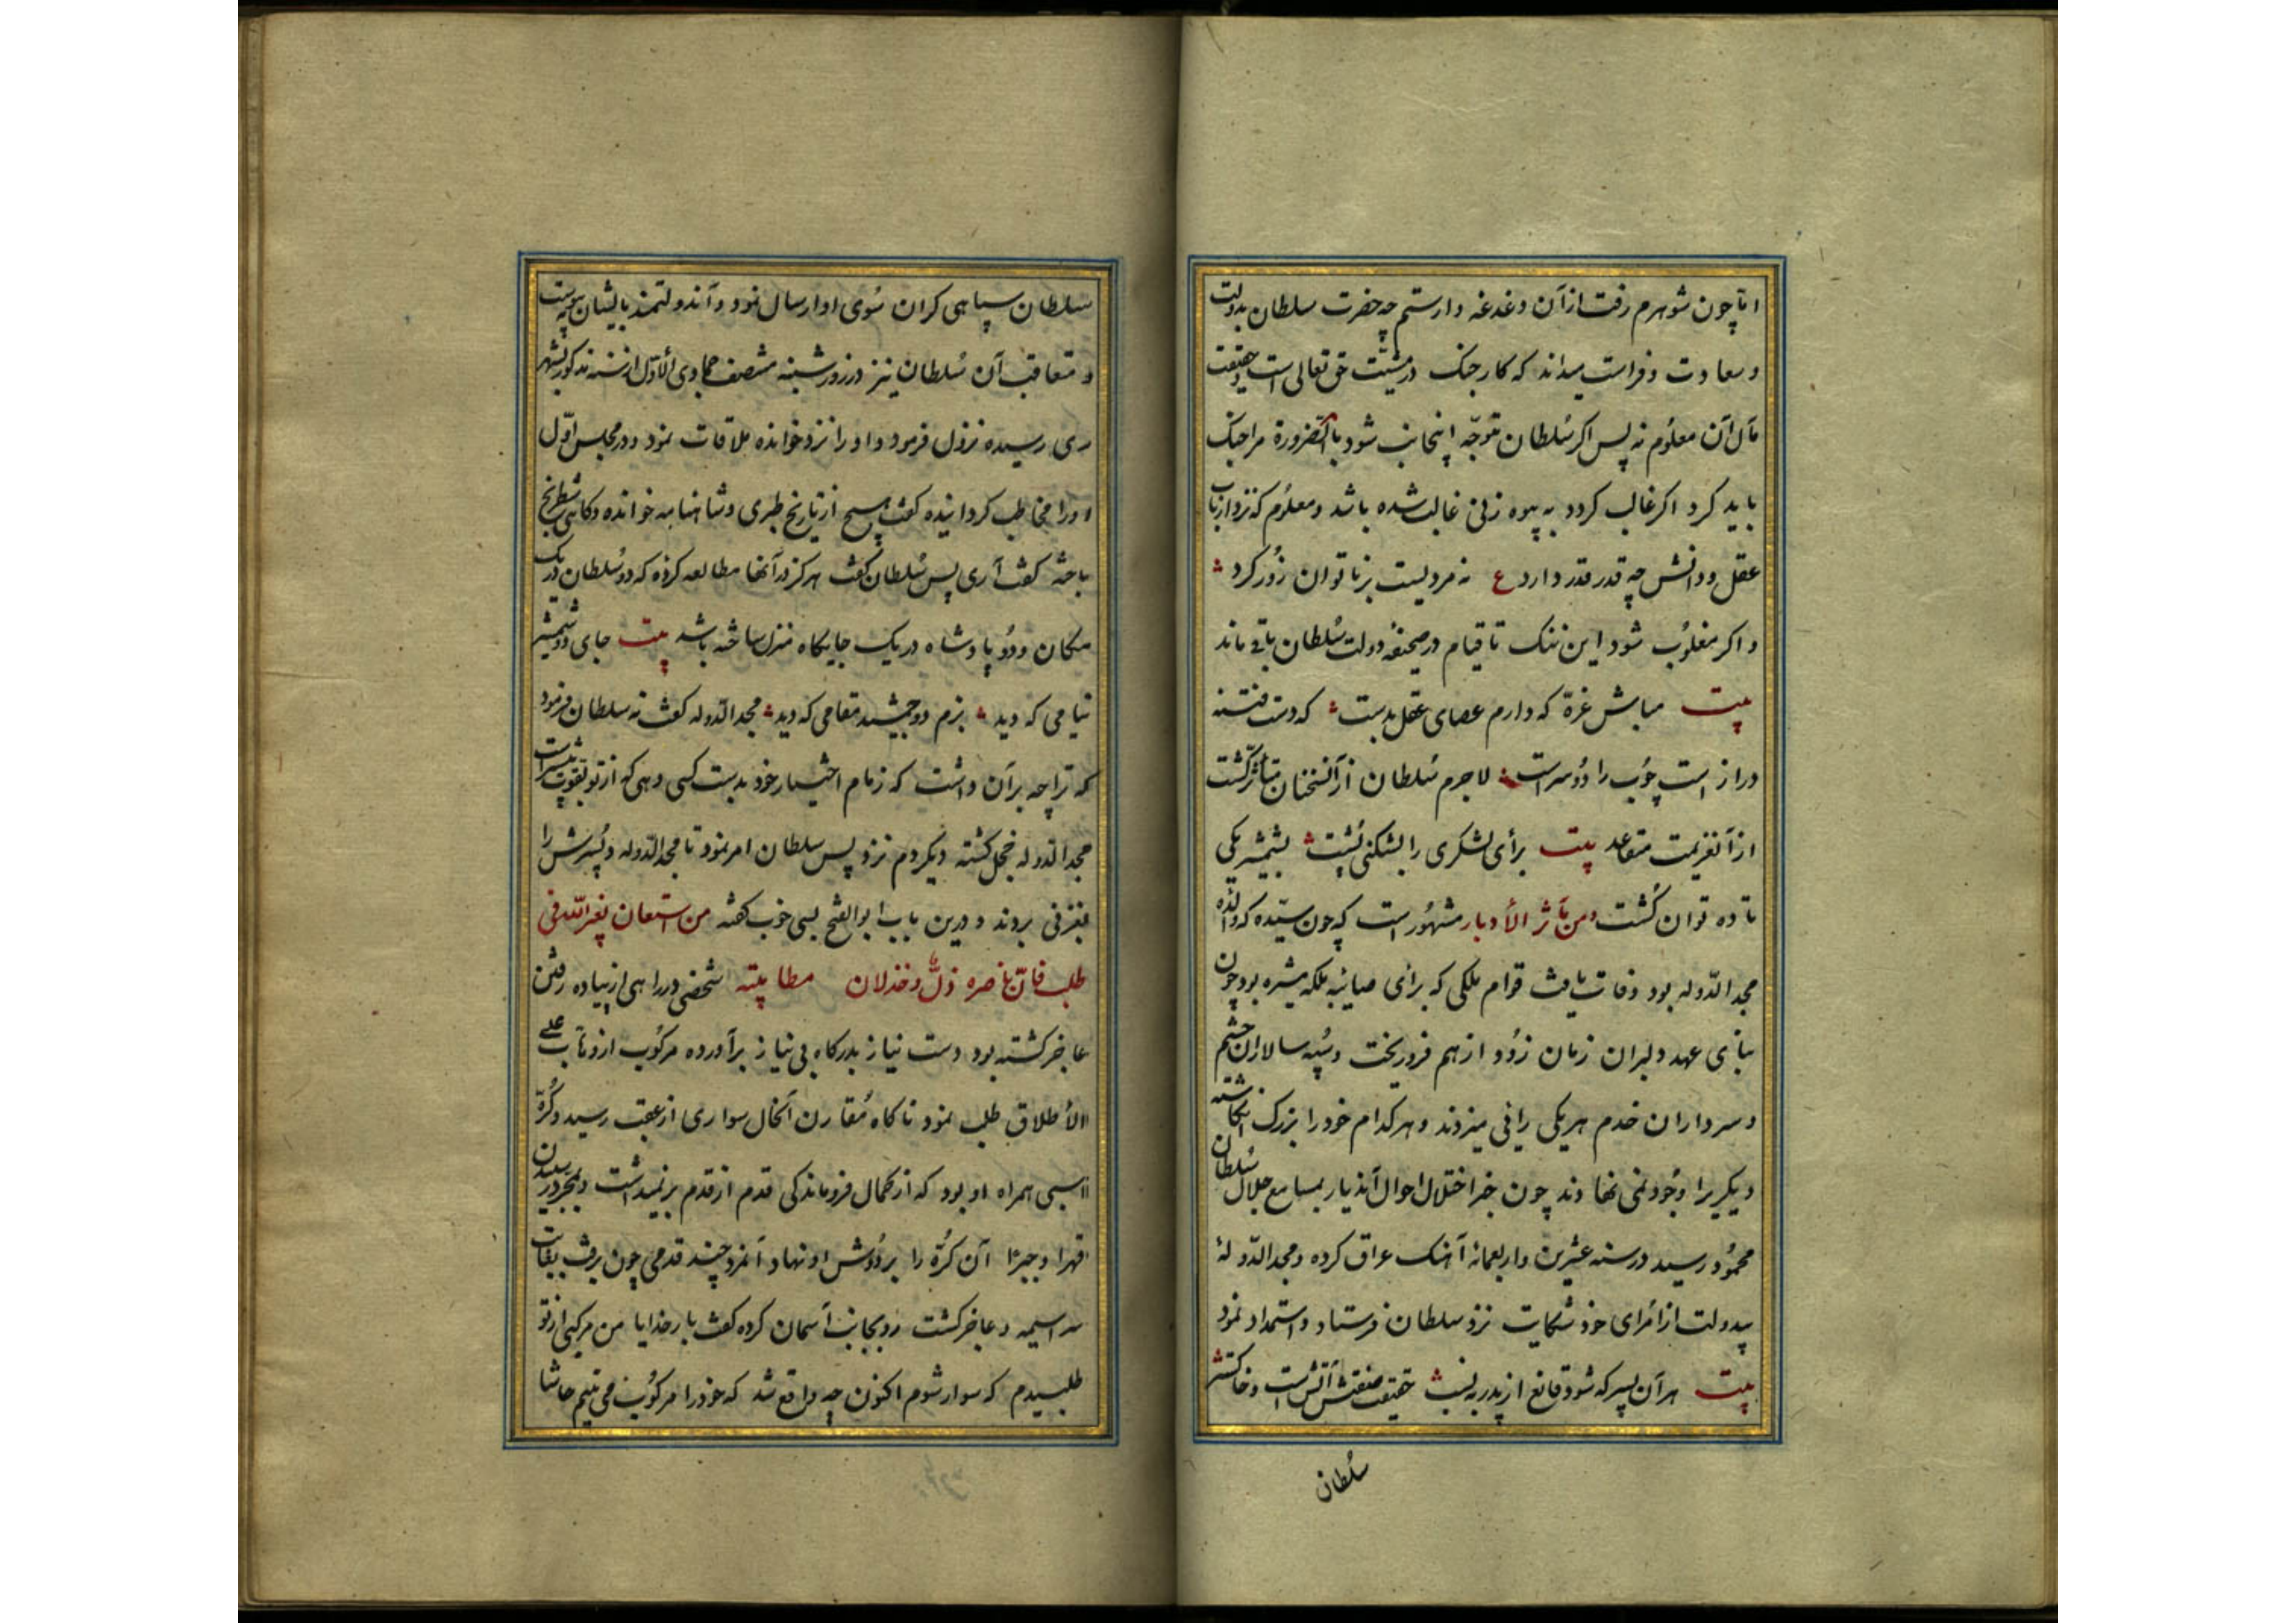 اما چون شوهرم رفت از آن دغدغه وارستم چه حضرت سلطان بدولت
و سعادت و فراست میداند که کار جنک در مشیّت حق تعالی است و حقیقت
مآل آن معلُوم نه پس اکر سُلطان متوجّه اینجانب شود بالضّرورة مرا جنک
باید کرد اکر غالب کردد به پیوه زنی غالب شده باشد و معلُوم که نزد ارباب
عقل و دانش چه قدر قدر دارد ع نه مردیست بر ناتوان زُور کرد
و اکر مغلُوب شود این ننک تا قیام در صحیفهٔ دولت سُلطان باقی ماند
بیت مباش غرّه که دارم عصای عقل بدست که دست فتنه
دراز است چوُب را دوُ سر است لاجرم سُلطان از آنسخنان متأثّر کشت
از آنعزیمت متقاعد بیت برأی لشکری را بشکنی پُشت بشمشیر یکی
تا ده توان کُشت و من مآثر الأدبار مشهُور است که چون سیّده که والدهٔ
مجد الدّوله بود وفات یافت قوام ملکی که برای صایبهٔ ملکه میسّره بود چون
بنای عهد دلبران زمان زوُد از هم فروریخت و سُپه سالاران حشم
و سرداران خدم هر یکی رافی میزدند و هر کدام خود را بزرک انکاشته
دیکریرا وجُود نمی نهادند چون خبر اختلال احوال آندیار بمسامع جلال سُلطان
محمُود رسید در سنه عشرین و اربعمائه آهنک عراق کرده و مجد الدّولهٔ
بیدولت از امرای خود شکایت نزد سلطان فرستاد و استمداد نمود
بیت هر آن پسر که شود قانع از پدر به نسب حقیقت صفتش آتش است و خاکستر
سُلطان
سُلطان سپاهی کران سُوی او ارسال نمود و آندولتمند بایشان پیوست
و متعاقب آن سُلطان نیز در روز شنبه منتصف جمادی الأوّل از سنه مذکور بشهر
ری رسیده نزول فرمود و او را نزد خوانده ملاقات نمود و در مجلس اوّل
او را مخاطب کردانیده کفت هیچ از تاریخ طبری و شاهنامه خوانده و کاهی شطرنج
باخته کفت آری پس سُلطان کفت هرکز در آنها مطالعه کردهٔ که دو سُلطان در یک
مکان و دوُ پادشاه در یک جایکاه منزل ساخته باشد بیت جای دو شمشیر
نیامی که دید بزم دو جمشید مقامی که دید مجد الدّوله کفت نه سلطان فرمود
که ترا چه بر آن داشت که زمام اختیار خود بدست کسی دهی که از تو بقوت بیشتر است
مجد الدّوله خجل کشته دیکر دم نزد پس سلطان امر نمود تا مجد الدّوله و پُسرش را
بغزنی بردند و درین باب ابو الفتح بسی خوب کفته من استعان بغیر اللّه فی
طلب فانّ ناصره ذلٌّ و خذلان مطایبته شخصی در راهی از پیاده رفتن
عاجز کشته بود دست نیاز بدرکاه بی نیاز برآورده مرکُوب از وهّاب علی
الأطلاق طلب نمود ناکاه مُقارن آنحال سواری از عقب رسید و کُرّهٔ
اسبی همراه او بود که از کمال فروماندکی قدم از قدم برنمیداشت و بمجرد رسیدن
قهرا و جبرًا آن کُرّه را بر دُوش او نهاد آنمرد چند قدمی چون برفت بغایت
سراسیمه و عاجز کشت رو بجانب آسمان کرده کفت بار خدایا من مرکبی از تو
طلبیدم که سوار شوم اکنون چه واقع شد که خود را مرکُوب می بینم حاشا